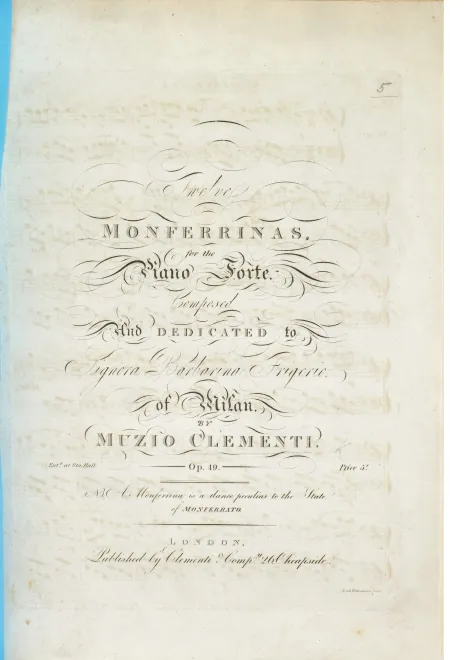 5
Twelve
MONFERRINAS,
for the
Piano Forte.
Composed
And DEDICATED to
Signora Barbarina Frigerio.
of Milan.
BY
MUZIO CLEMENTI.
Ent.d at Sta. Hall
Op. 49.
Price 5.s
NB. A Monferrina is a dance peculiar to the State
of MONFERRATO.
LONDON,
Published by Clementi & Comp.y 26 Cheapside